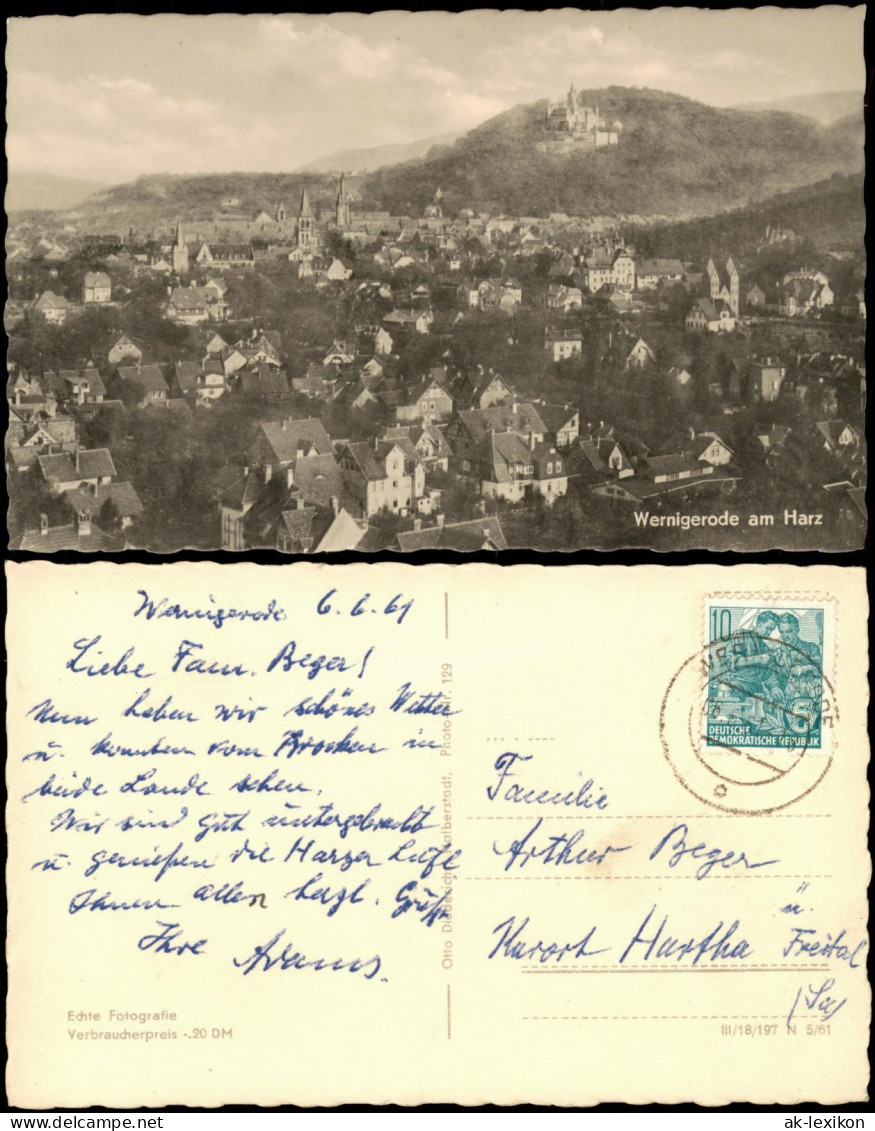 Wernigerode am Harz
Wernigerode 6.6.61
Liebe Fam. Beger!
Nun haben wir schönes Wetter
u. konnten vom Brocken in
beide Lande sehen.
Wir sind gut untergebracht
u. genießen die Harzer Luft
Ihnen allen herzl. Grüße
Ihre
Echte Fotografie
Verbraucherpreis -.20 DM
Otto Halberstadt, Photo-Nr. 129
10
DEUTSCHE
DEMOKRATISCHE REPUBLIK
Familie
Arthur Beger
Kurort Hartha ü. Freital
(Sa)
III/18/197 N 5/61
ak-lexikon